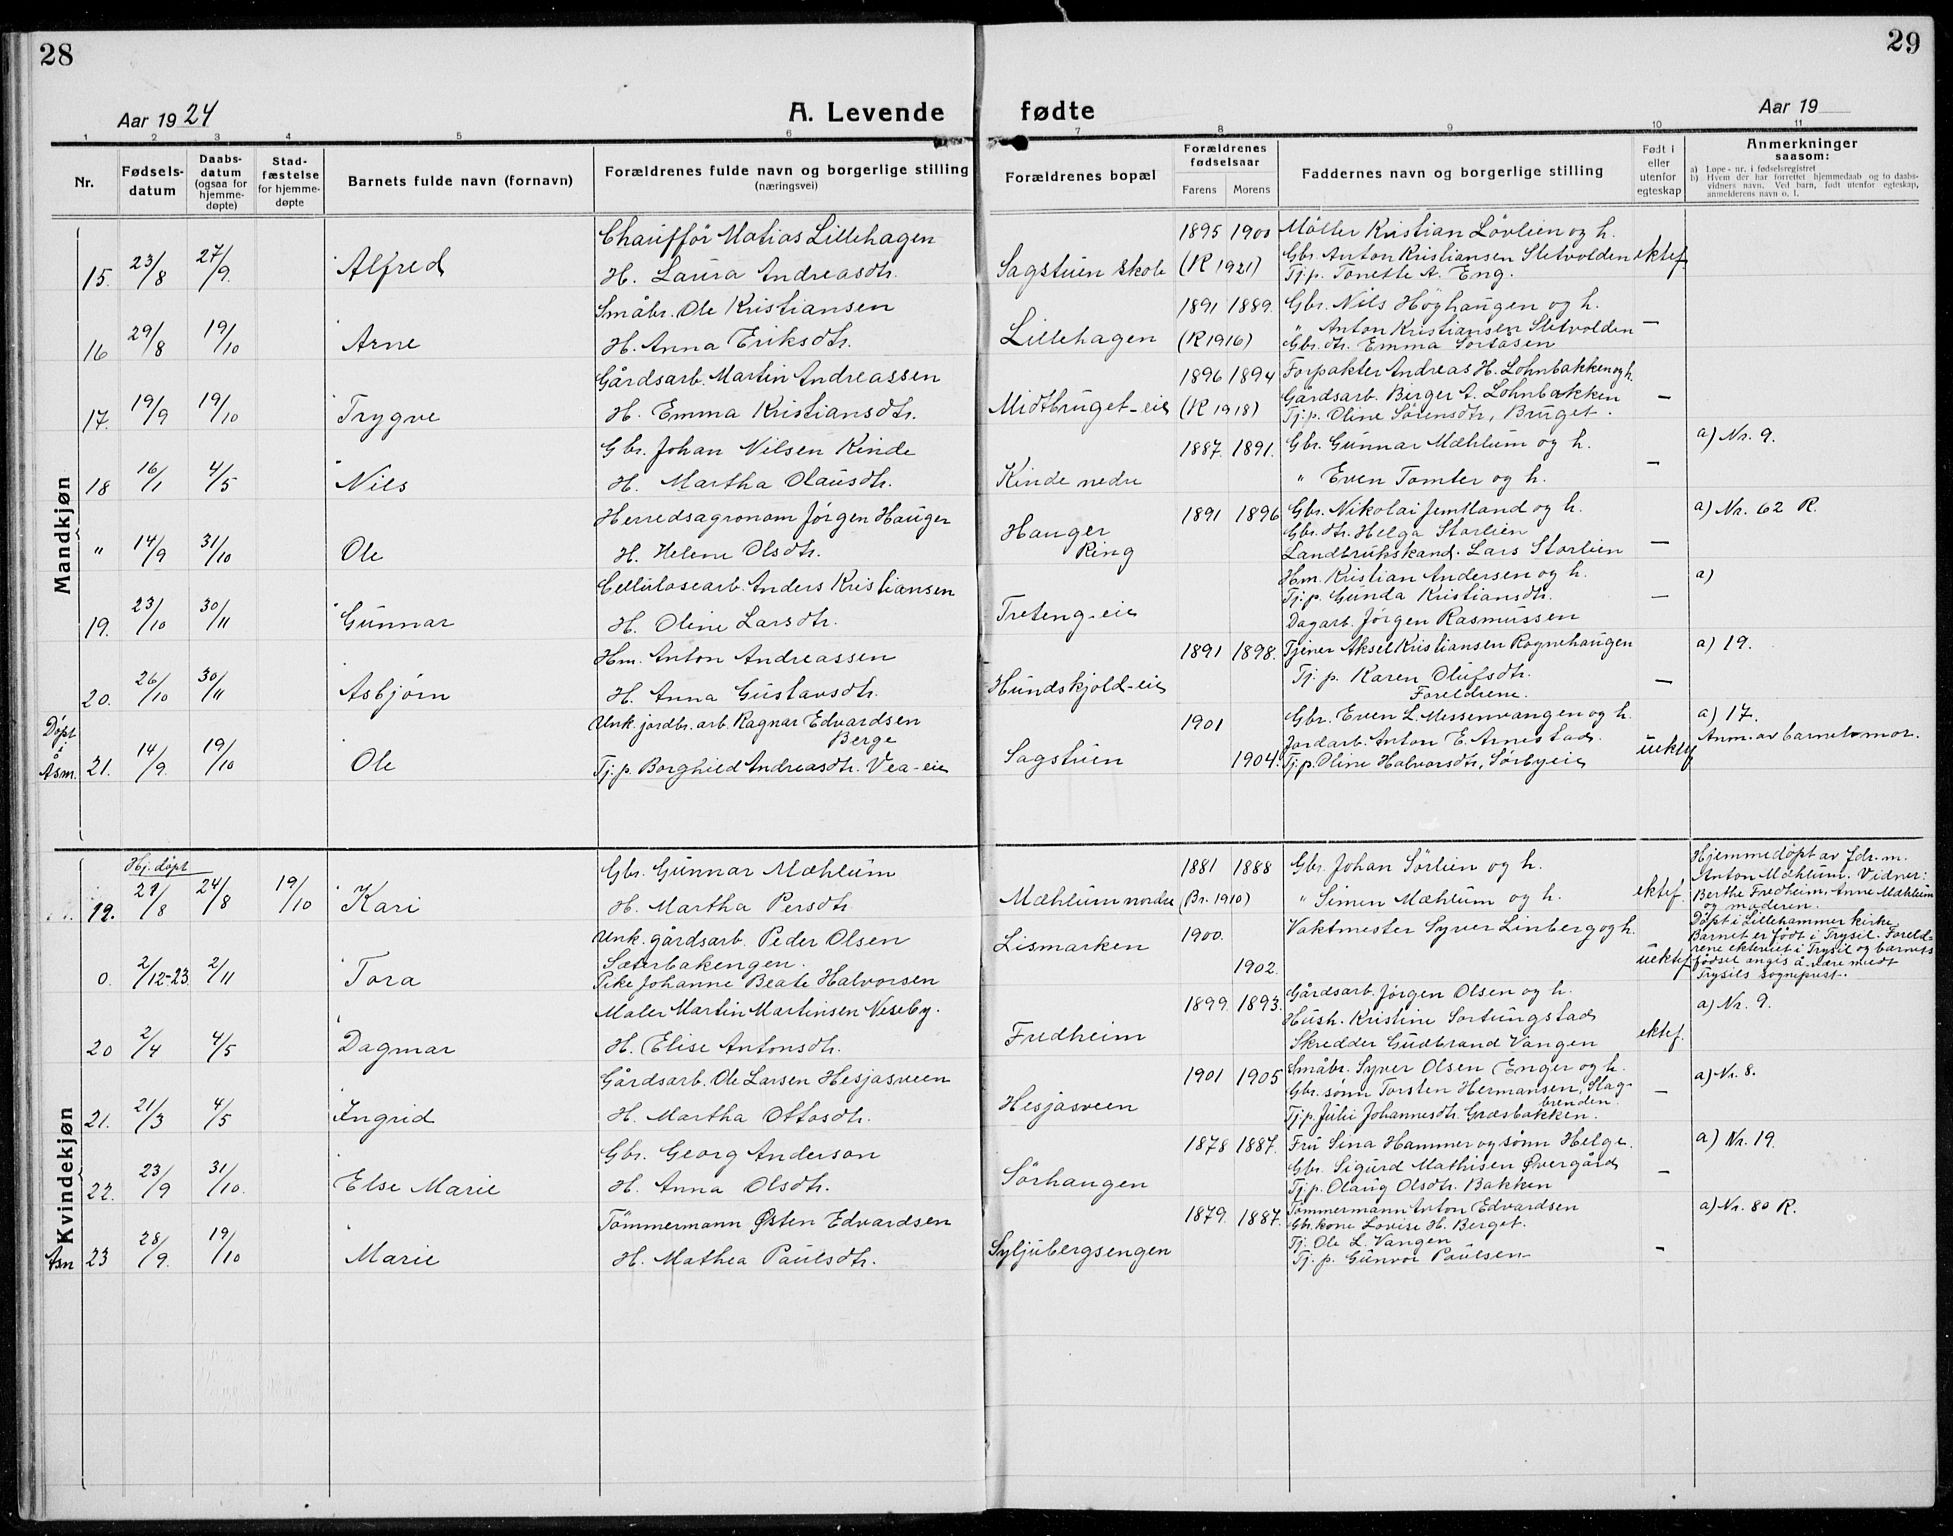 28
29
Aar 1924
A. Levende fødte
Aar 19
1 2 3 4 5 6 7 8 9 10 11
Nr.
Fødsels-
datum
Daabs-
datum
(ogsaa for
hjemme-
døpte)
Stad-
fæstelse
for hjemme-
døpte
Barnets fulde navn (fornavn)
Forældrenes fulde navn og borgerlige stilling
(næringsvei)
Forældrenes bopæl
Forældrenes
fødselsaar
Farens Morens
Faddernes navn og borgerlige stilling
Født i
eller
utenfor
egteskap
Anmerkninger
saasom:
a) Løpe-nr. i fødselsregistret
b) Hvem der har forrettet hjemmedaab og to daabs-
vidners navn. Ved barn, født utenfor egteskap,
anmelderens navn o. l.
Mandkjøn
15. 23/8 27/9. Alfred
Chauffør Matias Lillehagen
H. Laura Andreasdtr.
Sagstuen skole
1895 1900
(K 1921)
Møller Kristian Lövlien og h.
Gbr. Anton Kristiansen Sletvolden
Tj.p. Tonette A. Eng.
ektef.
16 29/8 19/10 Arne
Småbr. Ole Kristiansen
H. Anna Eriksdtr.
Lillehagen
1891 1889.
(K 1916)
Gbr. Nils Höghaugen og h.
" Anton Kristiansen Sletvolden
Gbr. dtr. Emma Sortåsen
—
17. 19/9 19/10 Trygve
Gårdsarb. Martin Andreassen
H. Emma Kristiansdtr.
Midtbruget-eie
1896 1894
(K 1918)
Forpakter Andreas H. Lohnbakken og h.
Gårdsarb. Berger A. Lohnbakken
Tj.p. Oline Sørensdtr, Bruget.
—
18 16/1 4/5 Nils
Gbr. Johan Nilsen Kinde
H. Martha Olausdtr.
Kinde nedre
1887. 1891.
Gbr. Gunnar Mæhlum og h.
" Even Tomter og h.
—
a) Nr. 9.
" 14/9 31/10 Ole
Herredsagronom Jørgen Hauger
H. Helene Olsdtr.
Hauger
Ring
1891 1896
Gbr. Nikolai Jemtland og h.
Gbr. dtr. Helga Storlien
Landbrukskand. Lars Storlien
—
a) Nr. 62 R.
19. 23/10 30/11 Gunnar
Cellulosearb. Anders Kristiansen
H. Oline Larsdtr.
Treteng-eie
Hm. Kristian Andersen og h.
Tj.p. Gunda Kristiansdtr.
Dagarb. Jørgen Rasmussen
—
a)
20. 26/10 30/11 Asbjørn
Hm. Anton Andreassen
H. Anna Gustavsdtr.
Hundskjold-eie
1891 1898.
Tjener Aksel Kristiansen Rognehaugen
Tj.p. Karen Olufsdtr.
Foreldrene.
—
a) 19.
Döpt
i
Åsm. 21. 14/9. 19/10 Ole
Unk. jordbr. arb. Ragnar Edvardsen
Berge
Tj.p. Borghild Andreasdtr. Vea-eie
Sagstuen
1901
1904.
Gbr. Even L. Messenvangen og h.
Jordarb. Anton E. Arnestad.
Tj.p. Oline Halvorsdtr, Sörbyeie
uektef
a) 17.
Anm. av barnets mor.
Kvindekjøn
19. Hj. döpt 24/8 19/10 Kari
Gbr. Gunnar Mæhlum
H. Martha Persdtr.
Mæhlum nordre
1881 1888
(Br. 1910)
Gbr. Johan Sörlien og h.
" Simen Mæhlum og h.
ektef.
Hjemmedöpt av jdr. m.
Anton Mæhlum. Vidner:
Berthe Fredheim, Anne Mæhlum
og moderen.
0. 2/12-23 2/11 Tora
Unk. gårdsarb. Peder Olsen
Sæterbakengen.
Pike Johanne Beate Halvorsen
Lismarken
1900.
1902.
Vaktmester Syver Linberg og h.
uektef
Döpt i Lillehammer kirke
Barnet er födt i Trysil. Foreld-
rene ekteviet i Trysil og barnets
födsel angis å være meldt
Trysils sogneprest.
20 2/4 4/5 Dagmar
Maler Martin Martinsen Neseby.
H. Elise Antonsdtr.
Fredheim
1899. 1893.
Gårdsarb. Jørgen Olsen og h.
Hush. Kristine Sortungstad
Skredder Gudbrand Vangen
ektef.
a) Nr. 9.
21. 21/3 4/5 Ingrid
Gårdsarb. Ole Larsen Hesjasveen
H. Martha Ottosdtr.
Hesjasveen
1901 1905
Småbr. Syver Olsen Enger og h.
Gbr. sønn Torsten Hermansen, Slag-
brenden.
Tj.p. Julie Johannesdtr. Græsbakken.
—
a) Nr. 8.
22. 23/9 31/10. Else Marie
Gbr. Georg Anderson
H. Anna Olsdtr.
Sörhaugen
1878 1887.
Fru Sina Hammer og sönn Helge.
Gbr. Sigurd Mathisen Øvergård
Tj.p. Olaug Olsdtr. Bakken
—
a) Nr. 19.
Åsm 23 28/9. 19/10 Marie
Tömmermann Østen Edvardsen
H. Mathea Paulsdtr.
Syljubergsengen
1879. 1887.
Tömmermann Anton Edvardsen
Gbr. kone Lovise H. Berget.
Tj. Ole L. Vangen
Tj. p. Gunvor Paulsen
—
a) Nr. 80 R.